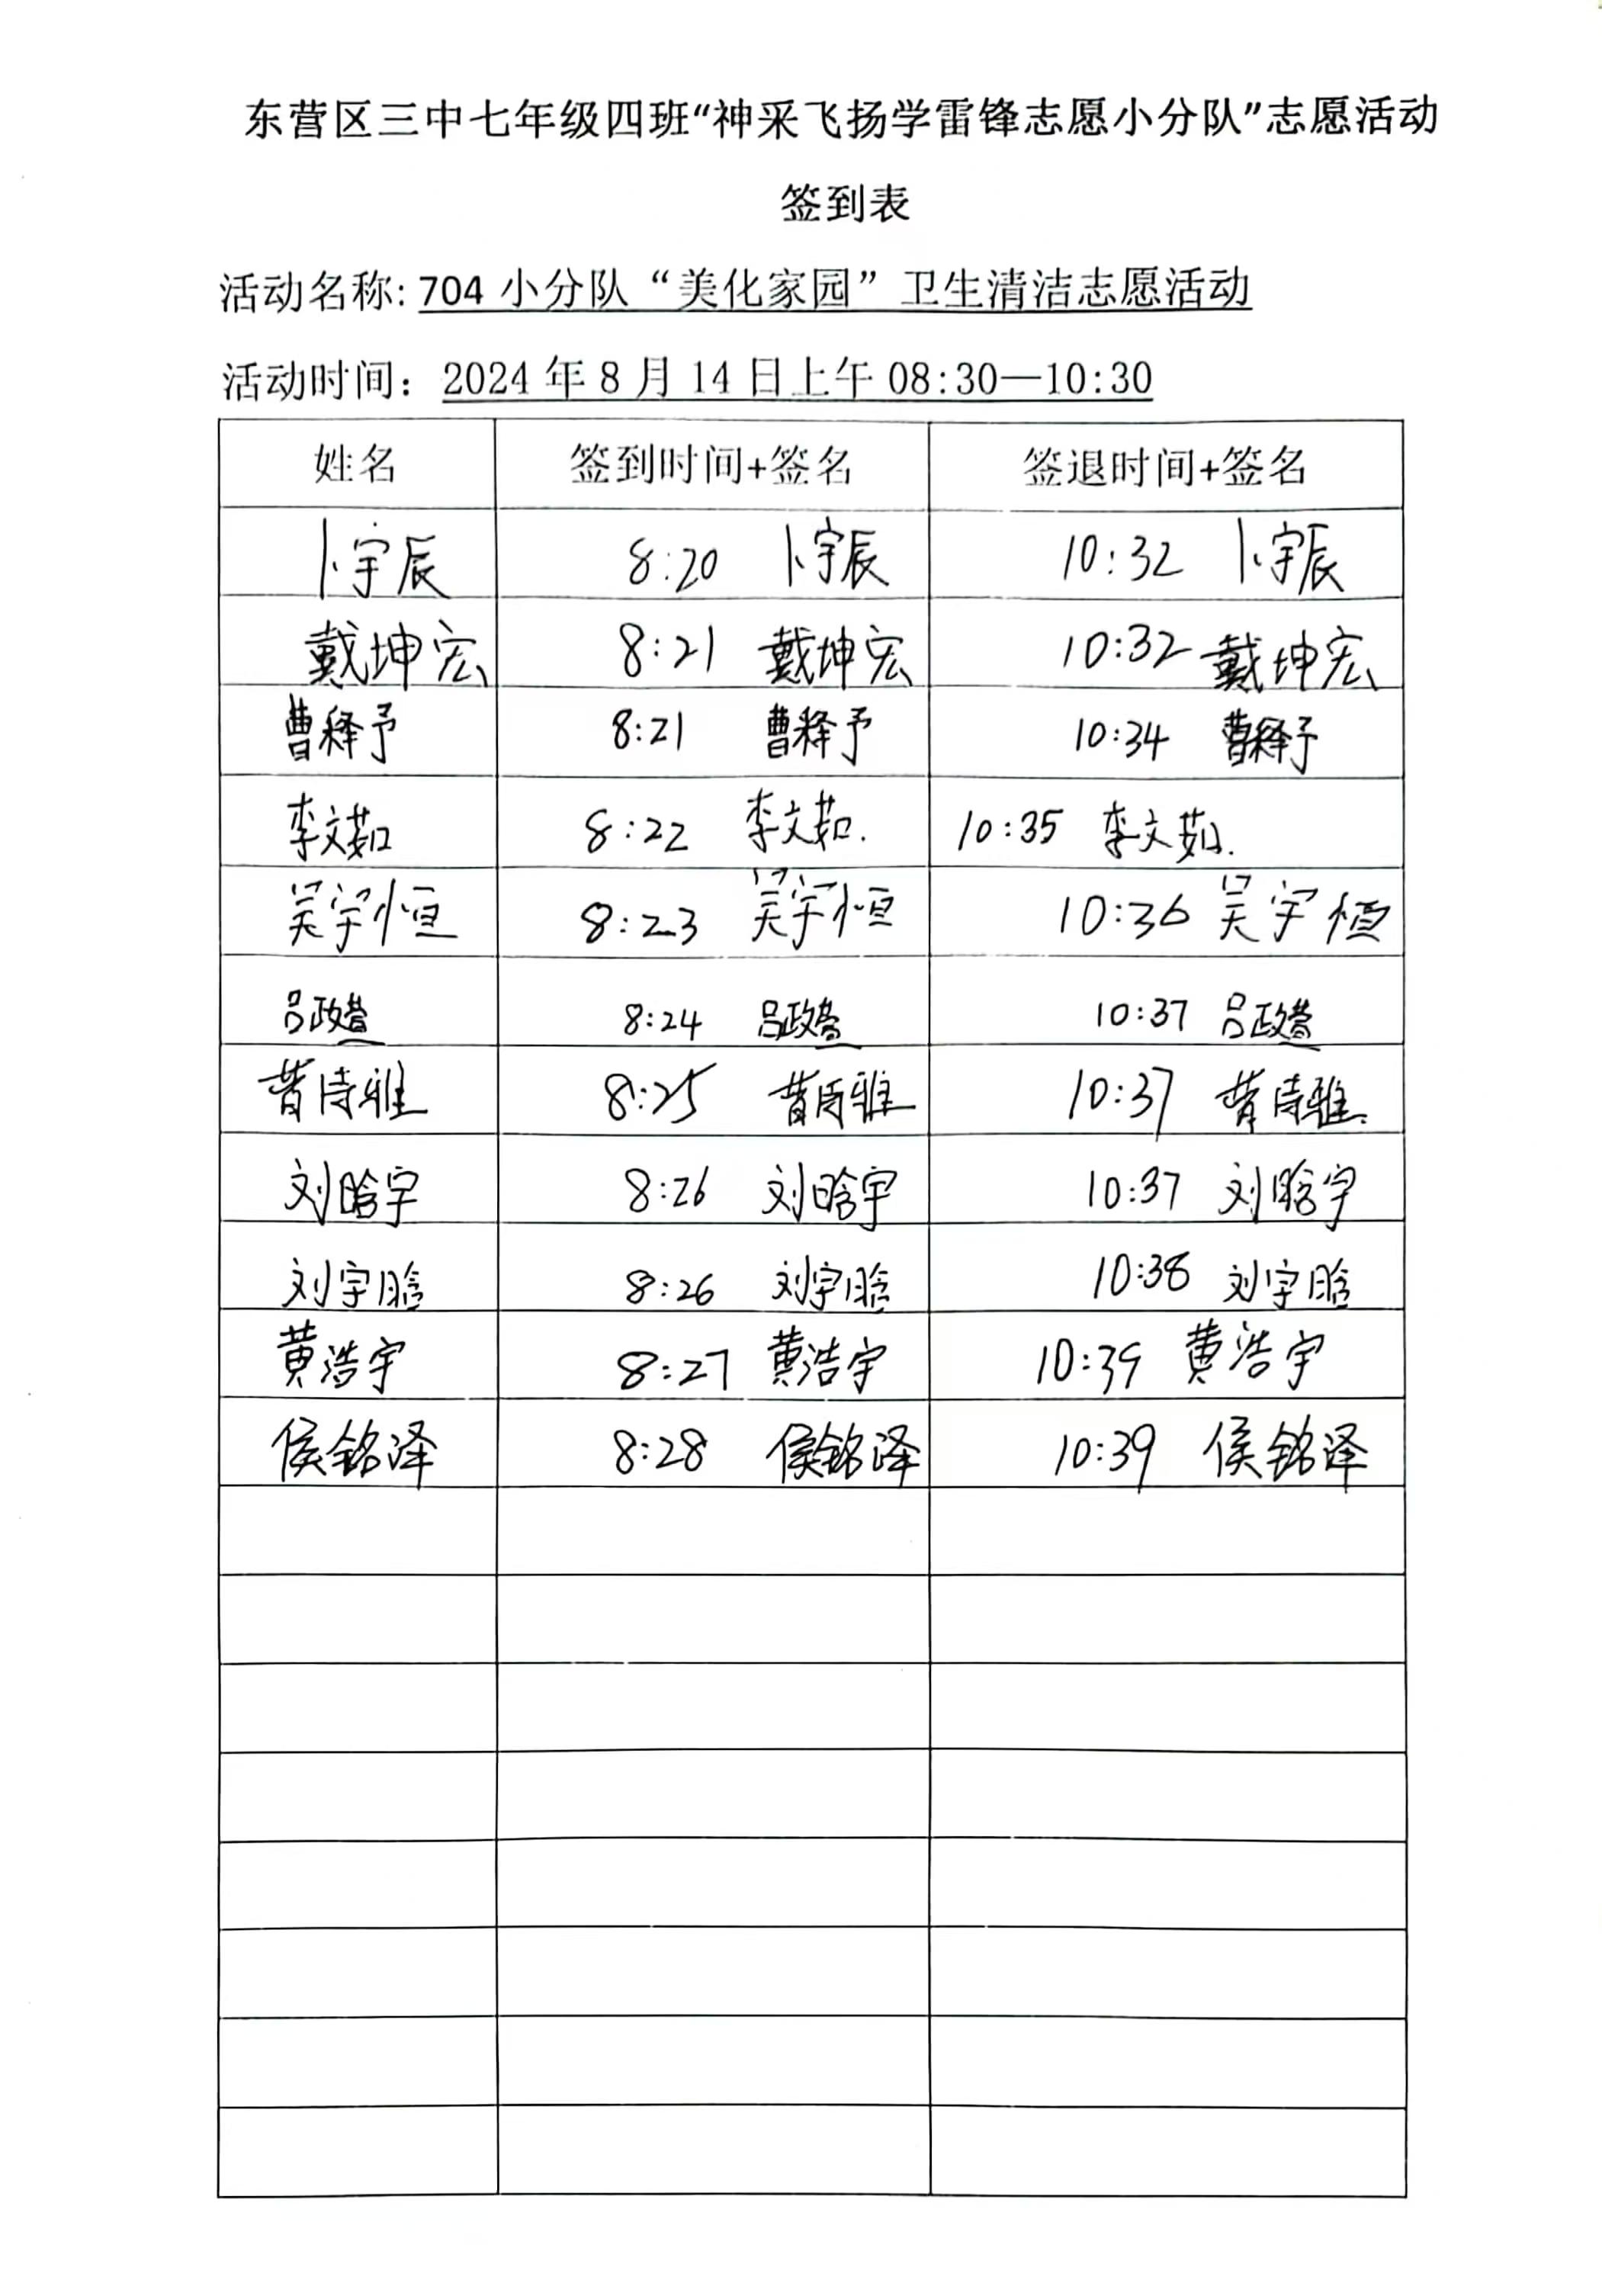 东营区三中七年级四班“神采飞扬学雷锋志愿小分队”志愿活动
签到表
活动名称: 704 小分队“美化家园”卫生清洁志愿活动
活动时间：2024 年 8 月 14 日上午 08:30—10:30
姓名 签到时间+签名 签退时间+签名
卜宇辰 8:20 卜宇辰 10:32 卜宇辰
戴坤宏 8:21 戴坤宏 10:32 戴坤宏
曹释予 8:21 曹释予 10:34 曹释予
李文茹 8:22 李文茹. 10:35 李文茹.
吴宇恒 8:23 吴宇恒 10:36 吴宇恒
吕政萱 8:24 吕政萱 10:37 吕政萱
曹诗雅 8:25 曹诗雅 10:37 曹诗雅.
刘晗宇 8:26 刘晗宇 10:37 刘晗宇
刘宇晗 8:26 刘宇晗 10:38 刘宇晗
黄浩宇 8:27 黄浩宇 10:39 黄浩宇
侯铭泽 8:28 侯铭泽 10:39 侯铭泽